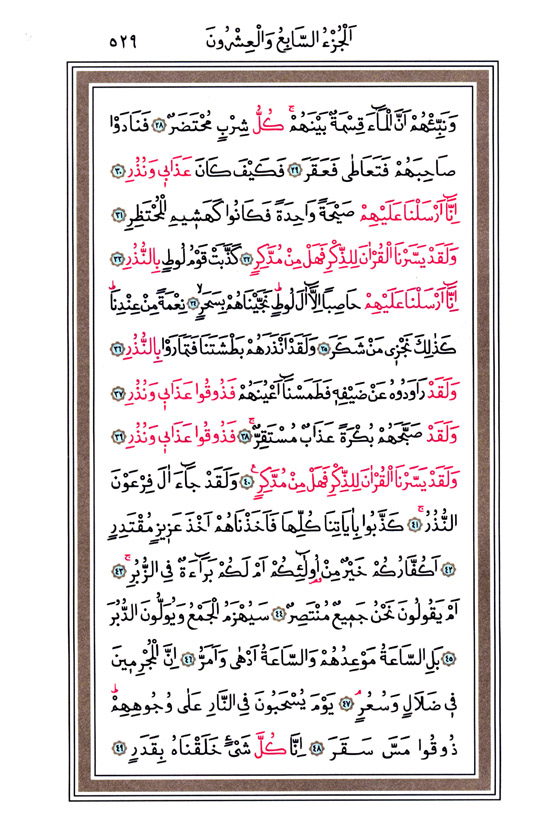 اَلْجُزْءُ السَّابِعُ وَالْعِشْرُونَ ٥٢٩
وَنَبِّئْهُمْ اَنَّ الْمَٓاءَ قِسْمَةٌ بَيْنَهُمْۚ كُلُّ شِرْبٍ مُحْتَضَرٌ ﴿٢٨﴾ فَنَادَوْا
صَاحِبَهُمْ فَتَعَاطٰى فَعَقَرَ ﴿٢٩﴾ فَكَيْفَ كَانَ عَذَاب۪ي وَنُذُرِ ﴿٣٠﴾
اِنَّٓا اَرْسَلْنَا عَلَيْهِمْ صَيْحَةً وَاحِدَةً فَكَانُوا كَهَش۪يمِ الْمُحْتَظِرِ ﴿٣١﴾
وَلَقَدْ يَسَّرْنَا الْقُرْاٰنَ لِلذِّكْرِ فَهَلْ مِنْ مُدَّكِرٍ ﴿٣٢﴾ كَذَّبَتْ قَوْمُ لُوطٍ بِالنُّذُرِ ﴿٣٣﴾
اِنَّٓا اَرْسَلْنَا عَلَيْهِمْ حَاصِبًا اِلَّٓا اٰلَ لُوطٍۜ نَجَّيْنَاهُمْ بِسَحَرٍۙ ﴿٣٤﴾ نِعْمَةً مِنْ عِنْدِنَاۜ
كَذٰلِكَ نَجْز۪ي مَنْ شَكَرَ ﴿٣٥﴾ وَلَقَدْ اَنْذَرَهُمْ بَطْشَتَنَا فَتَمَارَوْا بِالنُّذُرِ ﴿٣٦﴾
وَلَقَدْ رَاوَدُوهُ عَنْ ضَيْفِه۪ فَطَمَسْنَٓا اَعْيُنَهُمْ فَذُوقُوا عَذَاب۪ي وَنُذُرِ ﴿٣٧﴾
وَلَقَدْ صَبَّحَهُمْ بُكْرَةً عَذَابٌ مُسْتَقِرٌّۚ ﴿٣٨﴾ فَذُوقُوا عَذَاب۪ي وَنُذُرِ ﴿٣٩﴾
وَلَقَدْ يَسَّرْنَا الْقُرْاٰنَ لِلذِّكْرِ فَهَلْ مِنْ مُدَّكِرٍ۟ ﴿٤٠﴾ وَلَقَدْ جَٓاءَ اٰلَ فِرْعَوْنَ
النُّذُرُۚ ﴿٤١﴾ كَذَّبُوا بِاٰيَاتِنَا كُلِّهَا فَاَخَذْنَاهُمْ اَخْذَ عَز۪يزٍ مُقْتَدِرٍ
﴿٤٢﴾ اَكُفَّارُكُمْ خَيْرٌ مِنْ اُو۬لٰٓئِكُمْ اَمْ لَكُمْ بَرَٓاءَةٌ فِي الزُّبُرِۚ ﴿٤٣﴾
اَمْ يَقُولُونَ نَحْنُ جَم۪يعٌ مُنْتَصِرٌ ﴿٤٤﴾ سَيُهْزَمُ الْجَمْعُ وَيُوَلُّونَ الدُّبُرَ
﴿٤٥﴾ بَلِ السَّاعَةُ مَوْعِدُهُمْ وَالسَّاعَةُ اَدْهٰى وَاَمَرُّ ﴿٤٦﴾ اِنَّ الْمُجْرِم۪ينَ
ف۪ي ضَلَالٍ وَسُعُرٍۢ ﴿٤٧﴾ يَوْمَ يُسْحَبُونَ فِي النَّارِ عَلٰى وُجُوهِهِمْۜ
ذُوقُوا مَسَّ سَقَرَ ﴿٤٨﴾ اِنَّا كُلَّ شَيْءٍ خَلَقْنَاهُ بِقَدَرٍ ﴿٤٩﴾